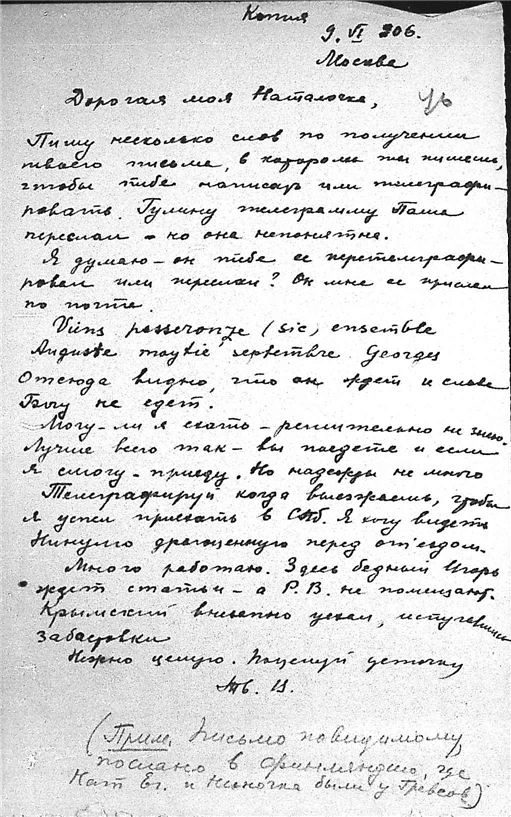 Копия
9. VI 906.
Москва
Дорогая моя Наталочка,
Пишу несколько слов по получении
твоего письма, в котором ты пишешь,
чтобы тебе написать или телеграфи-
ровать. Гулину телеграмму Паша
переслал - но она непонятна.
Я думаю - он тебе ее перетелеграфи-
ровал или переслал? Он мне ее прислал
по почте.
Viens (sic) ensemble
Auguste septembre Georges
Отсюда видно, что он ждет и слава
Богу не едет.
Могу-ли я ехать - решительно не знаю.
Лучше всего так - вы поедете и если
я смогу - приеду. Но надежды не много
Телеграфируй когда выезжаешь, чтобы
я успел приехать в СПб. Я хочу видеть
Нинулю драгоценную перед от'ездом.
Много работаю. Здесь бедный Игорь
ждет статьи - а Р.В. не помещают.
Крымский внезапно уехал, испугавшись
забастовки
Нежно целую. Поцелуй деточку
Тв. В.
(Прим. Письмо повидимому
послано в Финляндию, где
Нат. Ег. и Ниночка были у Гревсов)